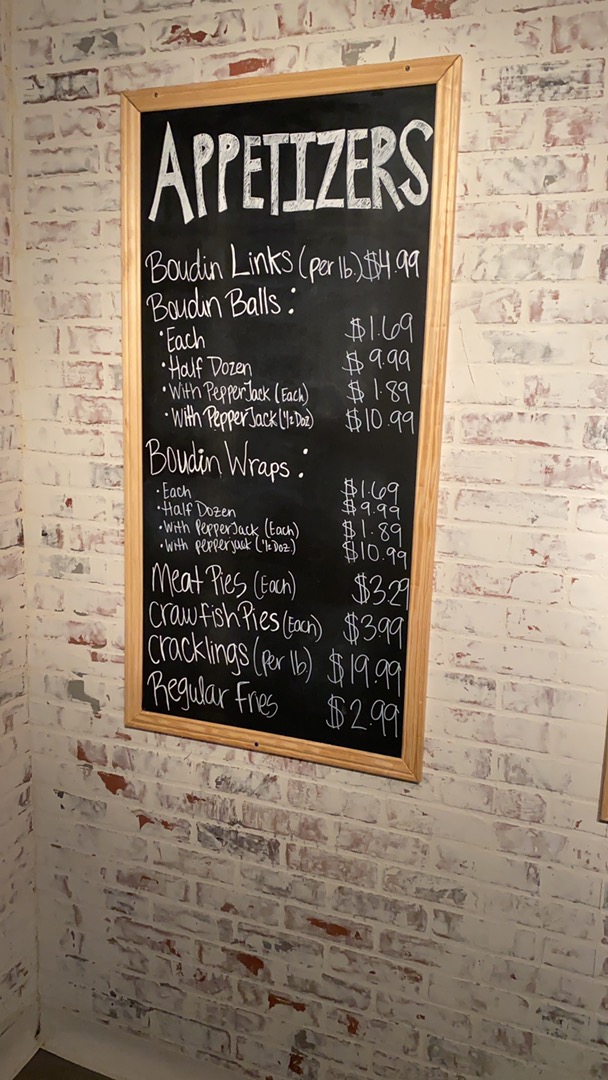 APPETIZERS
Boudin Links (per lb.) $4.99
Boudin Balls:
• Each $1.69
• Half Dozen $9.99
• With PepperJack (Each) $1.89
• With PepperJack (1/2 Doz) $10.99
Boudin Wraps:
• Each $1.69
• Half Dozen $9.99
• With PepperJack (Each) $1.89
• With pepperjack (1/2 Doz) $10.99
Meat Pies (Each) $3.29
Crawfish Pies (Each) $3.99
Cracklings (per lb) $19.99
Regular Fries $2.99